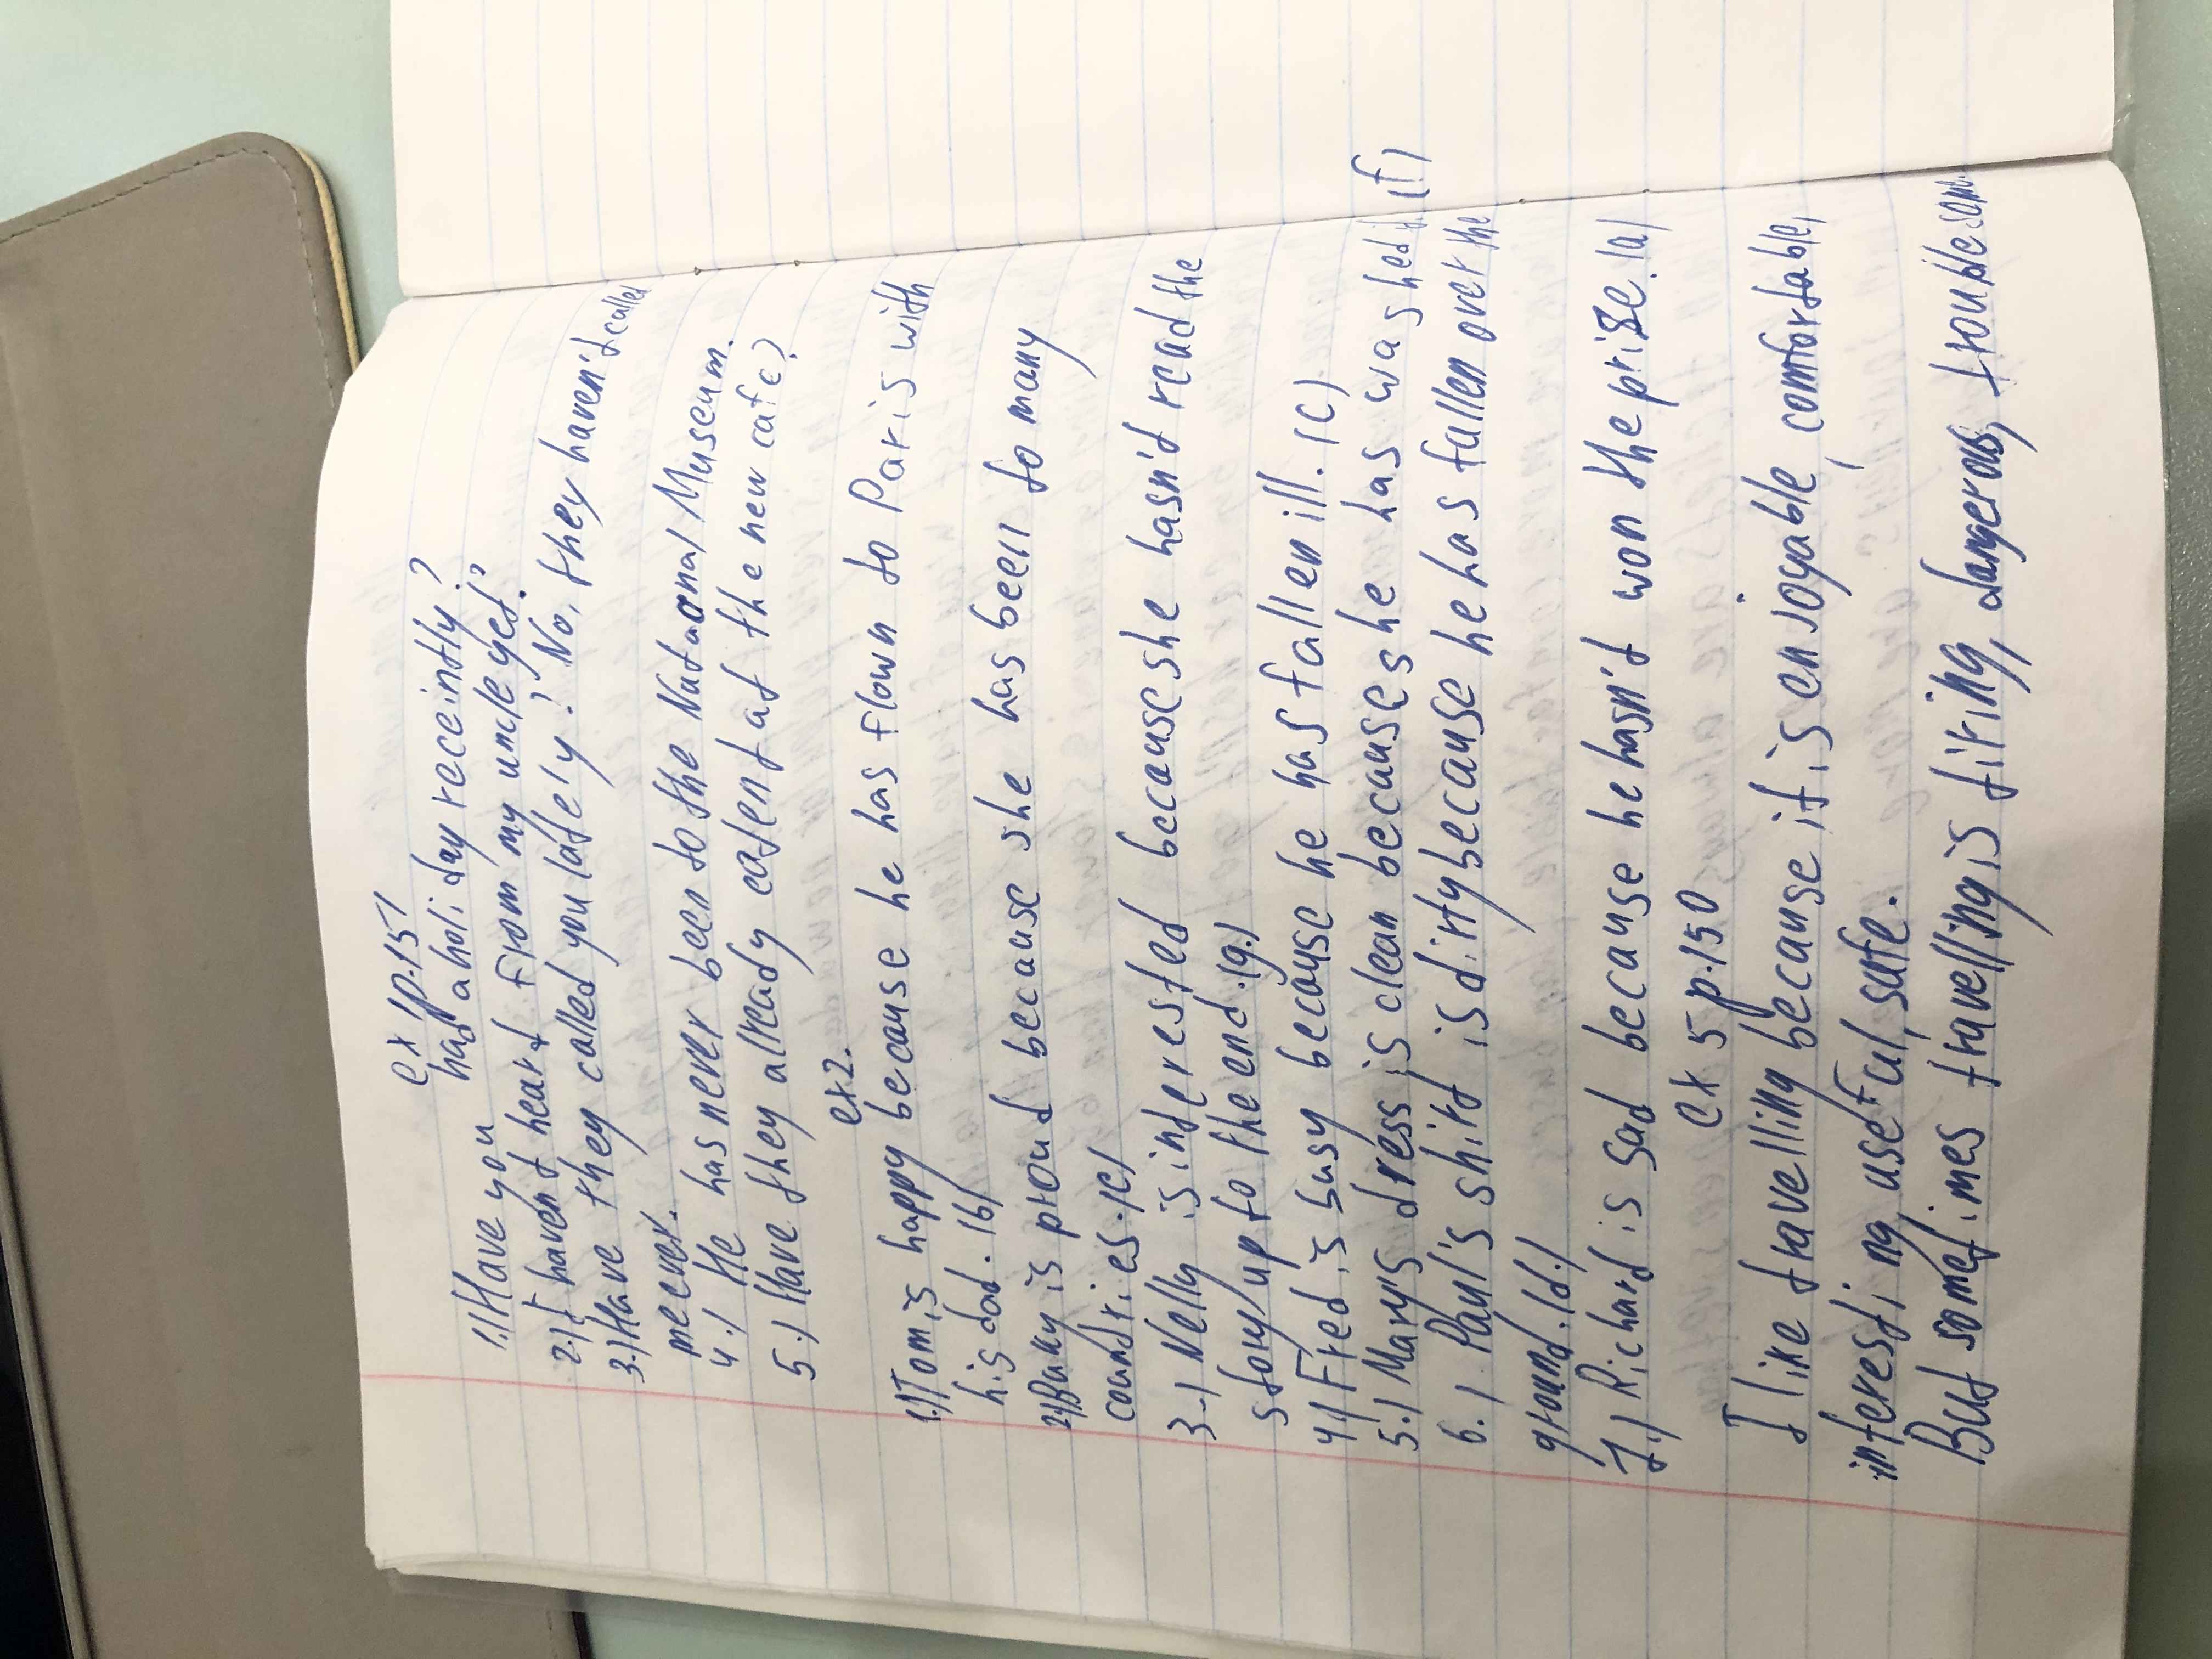 ex 1 p.151
1.) Have you had a holiday receintly?
2.) I haven't heard from my uncle yet.
3.) Have they called you lately? No, they haven't called
me ever.
4.) He has never been to the National Museum.
5.) Have they already eaten at the new cafe?
ex2.
1.) Tom is happy because he has flown to Paris with
his dad. (b)
2.) is proud because she has been to many
countries. (e)
3.) Nelly is interested because she hasn't read the
story up to the end. (g.)
4.) Fred is busy because he has fallen ill. (c)
5.) Mary's dress is clean because she has washed it. (f)
6.) Paul's shirt is dirty because he has fallen over the
ground. (d.)
7.) Richard is sad because he hasn't won the prise. (a)
ex 5 p.150
I like travelling because it is ensoyable, comfortable,
interesting, useful, safe.
But sometimes travelling is tiring, dangerous, troublesome.